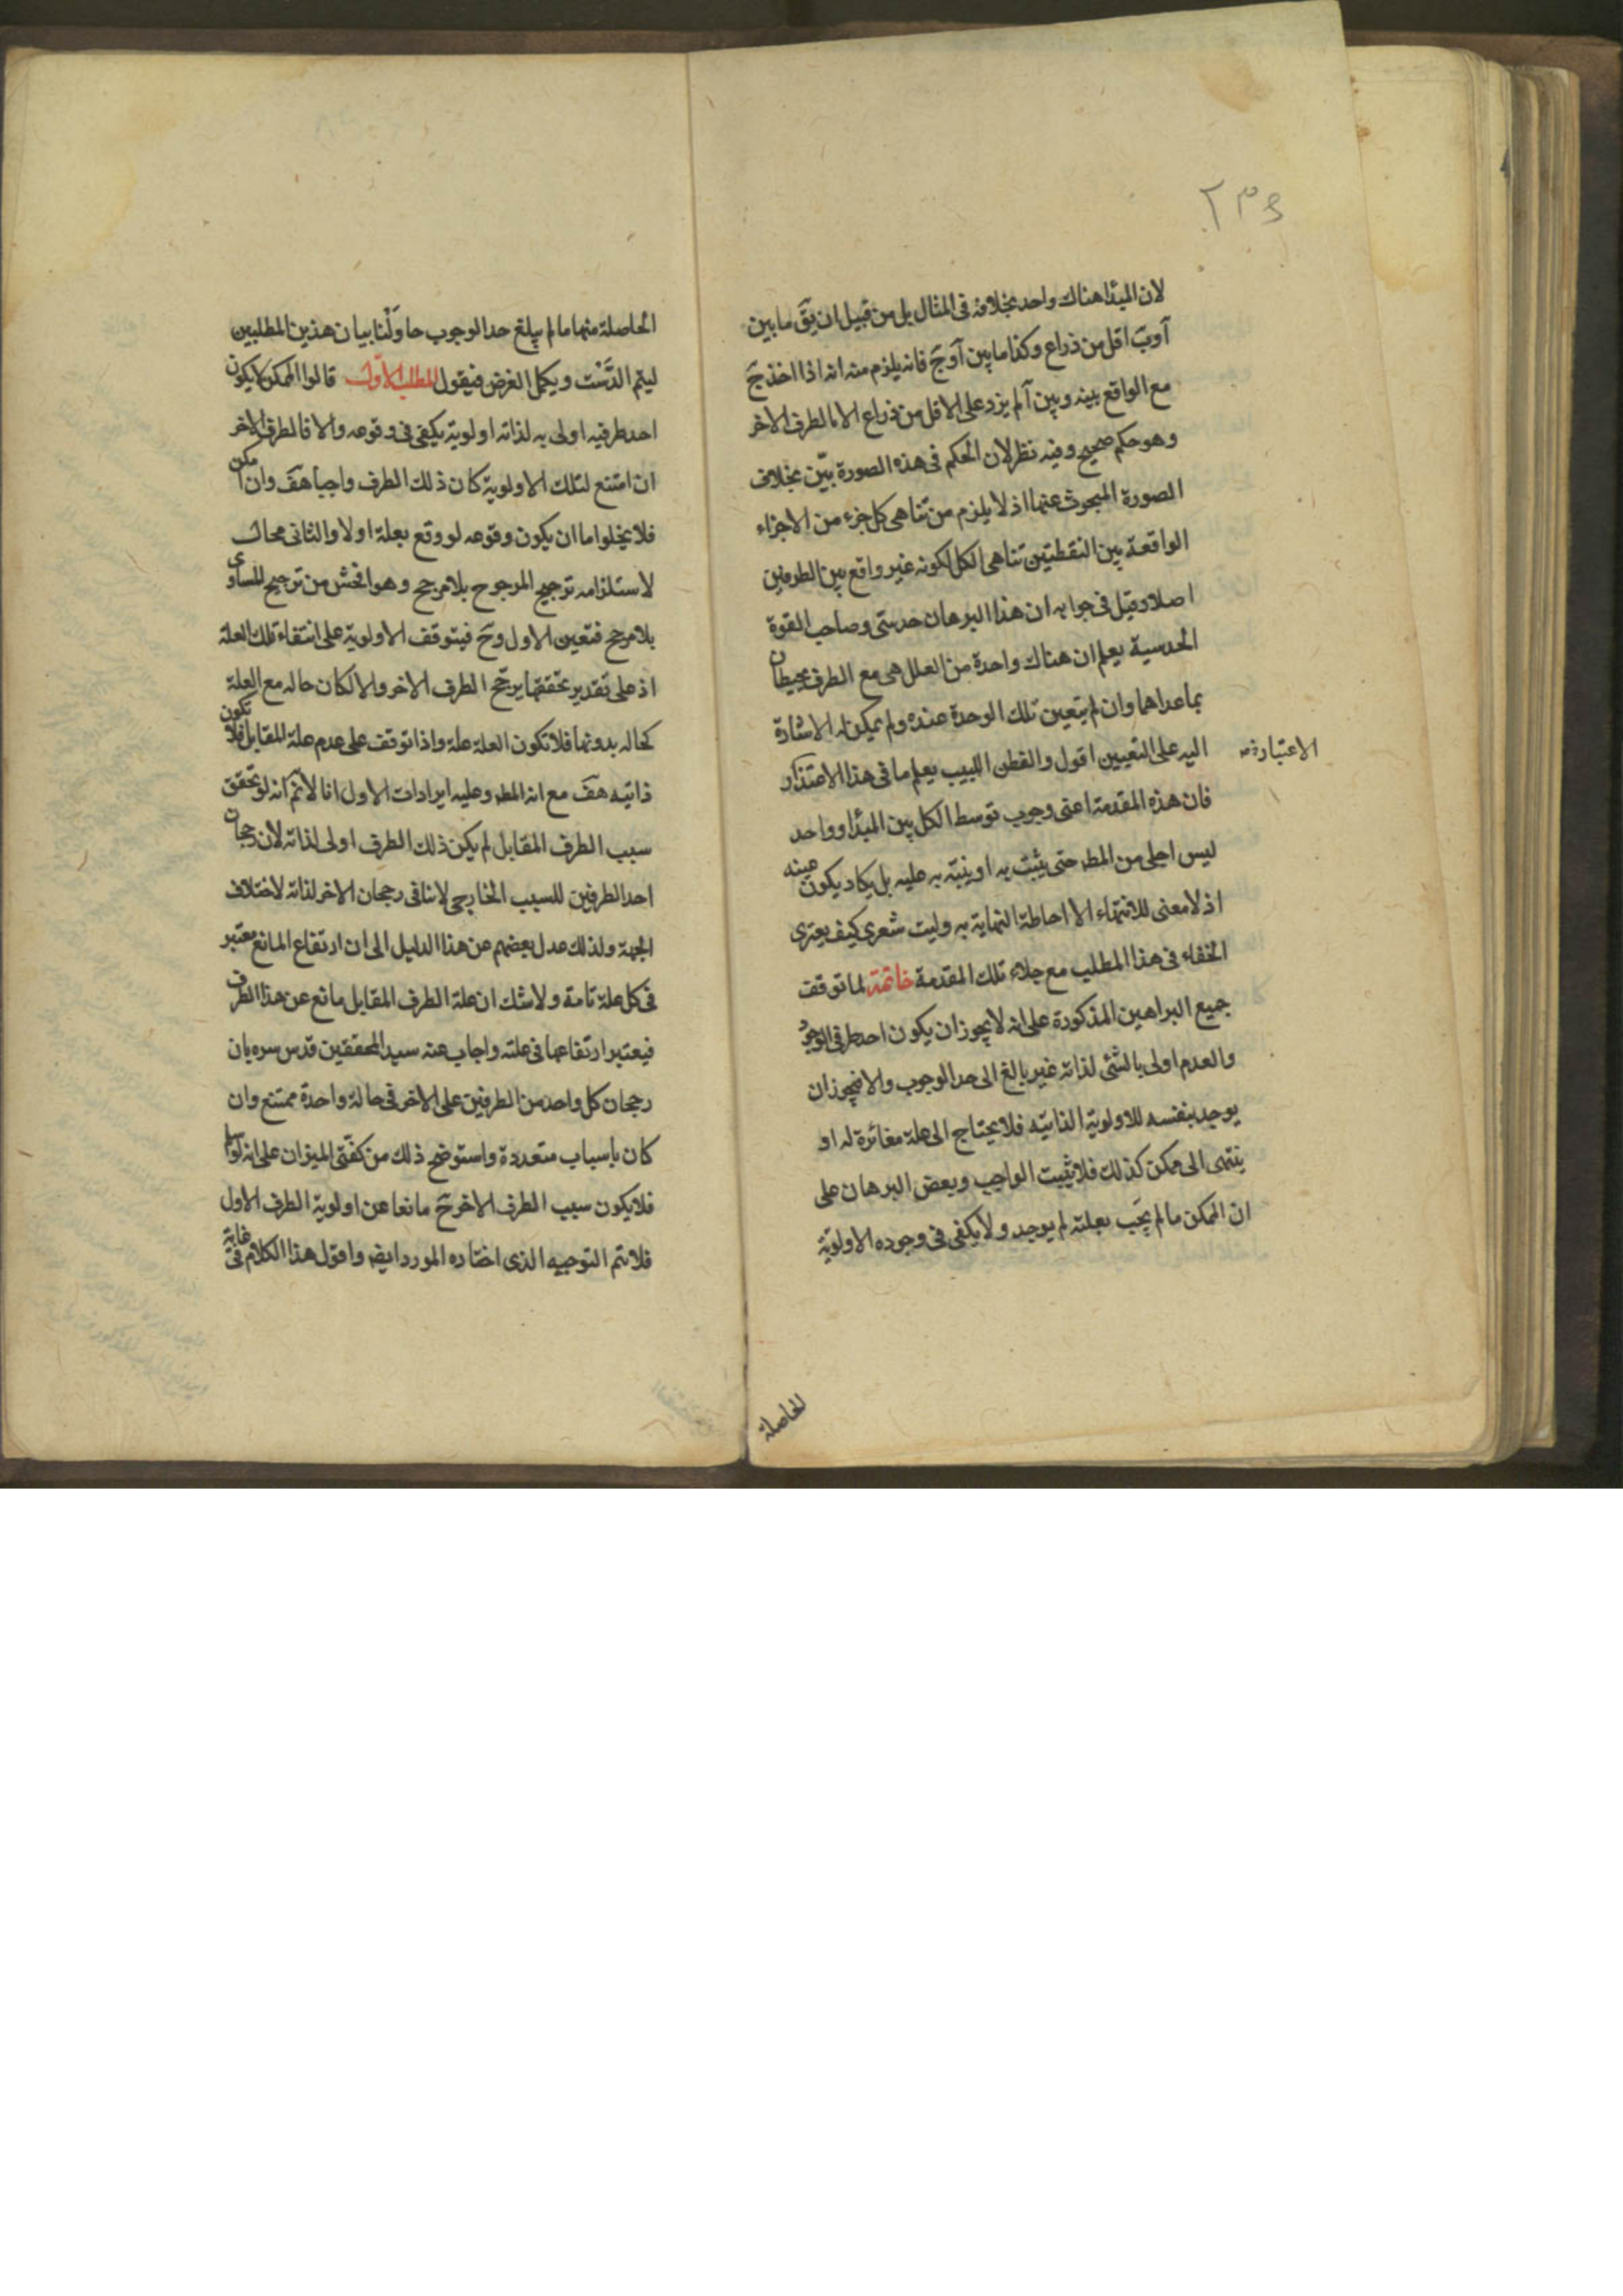 ٢٣٤
لان المبدأ هناك واحد بخلافه في المثال بل من قبيل ان يق ما بين
آ وب اقل من ذراع وكذا ما بين آ وج فانه يلزم منه انه اذا اخذ ج
مع الواقع بينه وبين آ لم يزد على الاقل من ذراع الا بالطرف الاخر
وهو حكم صحيح وفيه نظر لان الحكم في هذه الصورة بيّن بخلاف
الصورة المبحوث عنها اذ لا يلزم من تناهى كل جزء من الاجزاء
الواقعة بين النقطتين تناهى الكل لكونه غير واقع بين الطرفين
اصلا وقيل في جوابه ان هذا البرهان حدسّى وصاحب القوة
الحدسية يعلم ان هناك واحدة من العلل هي مع الطرف محيطان
بما عداهما وان لم يتعين تلك الوحدة عنده ولم يمكن له الاشارة
اليه على التعيين اقول والفطن اللبيب يعلم ما في هذا الاعتذار
الاعتبار
فان هذه المقدمة اعنى وجوب توسط الكل بين المبدأ وواحد
ليس اجلى من المط حتى يثبت به او ينبّه به عليه بل يكاد يكون عينه
اذ لا معنى للانتهاء الا احاطة النهاية به وليت شعرى كيف يعترى
الخفاء في هذا المطلب مع جلاء تلك المقدمة خاتمة لما توقف
جميع البراهين المذكورة على انه لا يجوز ان يكون احد طرفى الوجود
والعدم اولى بالشئ لذاته غير بالغ الى حد الوجوب والا فيجوز ان
يوجد بنفسه للاولوية الذاتيه فلا يحتاج الى علة مغائرة له او
ينتهى الى ممكن كذلك فلا يثبت الواجب وبعض البرهان على
ان الممكن ما لم يجب بعلته لم يوجد ولا يكفى في وجوده الاولويّة
الحاصلة
الحاصلة منها ما لم يبلغ حد الوجوب حاولْنا بيان هذين المطلبين
ليتم الدَّسْت ويكمل الغرض فيقول المطلب الاول قالوا الممكن لا يكون
احد طرفيه اولى به لذاته اولوية يكفى في وقوعه والا فالطرف الاخر
ان امتنع لتلك الاولوية كان ذلك الطرف واجبا هف وان امكن
فلا يخلوا ما ان يكون وقوعه لو وقع بعلة اولا والثانى محال
لاستلزامه ترجيح المرجوح بلا مرجح وهو افحش من ترجيح المساوى
بلا مرجح فتعين الاول وح فيتوقف الاولوية على انتفاء تلك العلة
اذ على تقدير تحققها يرجّح الطرف الاخر والا لكان حاله مع العلة
كحاله بدونها فلا تكون العلة علة واذا توقف على عدم علة المقابل فلا تكون
ذاتيه هف مع انه المط وعليه ايرادات الاول انا لا نم انه لو تحقق
سبب الطرف المقابل لم يكن ذلك الطرف اولى لذاته لان رجحان
احد الطرفين للسبب الخارجى لا ينافى رجحان الاخر لذاته لاختلاف
الجهة ولذلك عدل بعضهم عن هذا الدليل الى ان ارتفاع المانع معتبر
في كل علة تامة ولا شك ان علة الطرف المقابل مانع عن هذا الطرف
فيعتبر ارتفاعها في علته واجاب عنه سيد المحققين قدس سره بان
رجحان كل واحد من الطرفين على الاخر في حالة واحدة ممتنع وان
كان باسباب متعددة واستوضح ذلك من كفتى الميزان على انه لو سلم
فلا يكون سبب الطرف الاخر ح مانعا عن اولوية الطرف الاول
فلا يتم التوجيه الذى اختاره المورد ايض واقول هذا الكلام في غاية